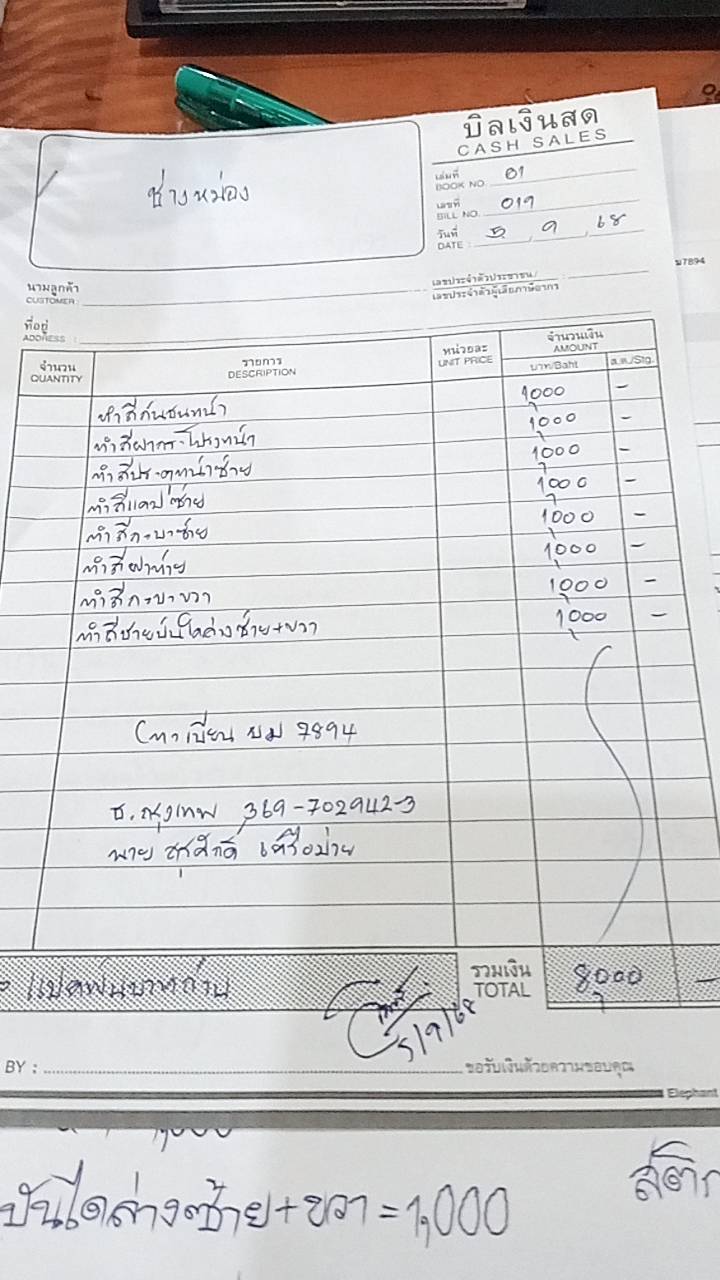 บิลเงินสด
CASH SALES
ช่างหม่อง
เล่มที่ 01
BOOK NO.
เลขที่ 019
BILL NO.
วันที่ 5 9 68
DATE :
ม7894
นามลูกค้า
CUSTOMER :
เลขประจำตัวประชาชน/ :
เลขประจำตัวผู้เสียภาษีอากร
ที่อยู่
ADDRESS :
จำนวน รายการ หน่วยละ จำนวนเงิน
QUANTITY DESCRIPTION UNIT PRICE AMOUNT
บาท/Baht ส.ต./Stg.
ทำสีกันชนหน้า 1,000 -
ทำสีฝากระโปรงหน้า 1,000 -
ทำสีประตูหน้าซ้าย 1,000 -
ทำสีแคปซ้าย 1,000 -
ทำสีกะบะซ้าย 1,000 -
ทำสีฝาท้าย 1,000 -
ทำสีกะบะขวา 1,000 -
ทำสีชายบันไดล่างซ้าย+ขวา 1,000 -
(ทะเบียน ยม 7894
ธ.กรุงเทพ 369-702942-3
นาย
แปดพันบาทถ้วน
รวมเงิน 8,000 -
TOTAL
5/9/68
BY :
ขอรับเงินด้วยความขอบคุณ
Elephant
บันไดล่างซ้าย+ขวา=1,000
สติก